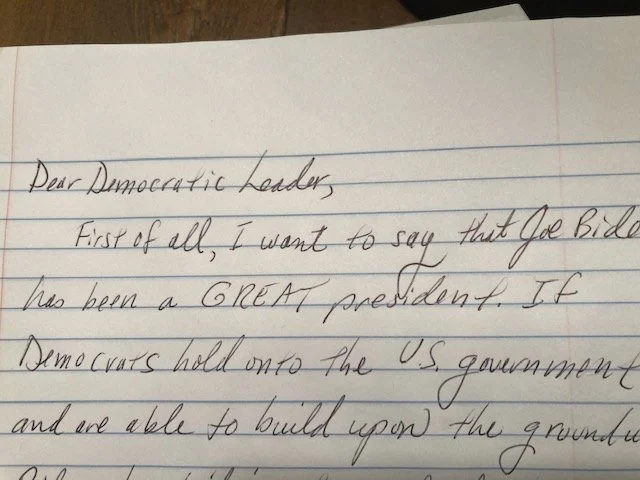 Dear Democratic Leader,
First of all, I want to say that Joe Bide
has been a GREAT president. If
Democrats hold onto the U.S. government
and are able to build upon the groundw